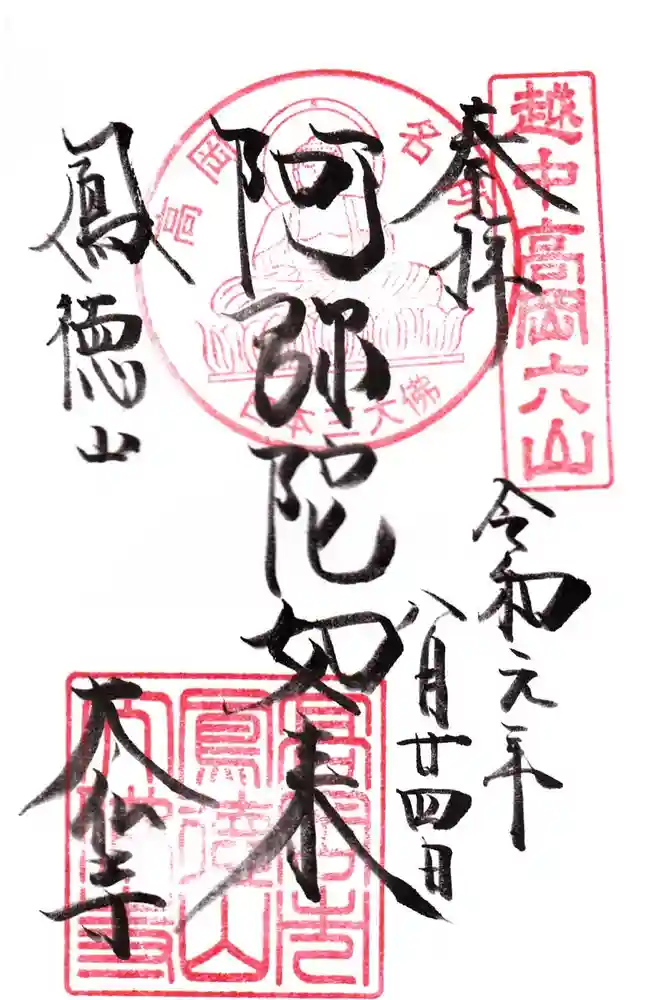 越中高岡六山
奉拝
令和元年
八月廿四日
阿弥陀如来
高岡名
日本三大佛
鳳徳山
大仏寺
高岡市
鳳徳山
大佛寺